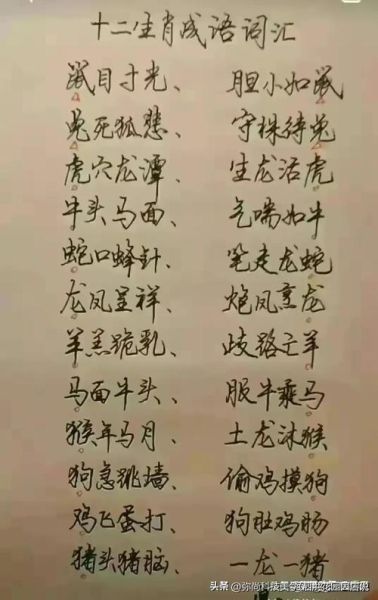 十二生肖成语词汇
鼠目寸光、 胆小如鼠
兔死狐悲、 守株待兔
虎穴龙潭、 生龙活虎
牛头马面、 气喘如牛
蛇口蜂针、 笔走龙蛇
龙凤呈祥、 炮凤烹龙
羊羔跪乳、 歧路亡羊
马面牛头、 服牛乘马
猴年马月、 土龙沐猴
狗急跳墙、 偷鸡摸狗
鸡飞蛋打、 狗肚鸡肠
猪头猪脑、 一龙一猪
头条 @弥尚科技美学